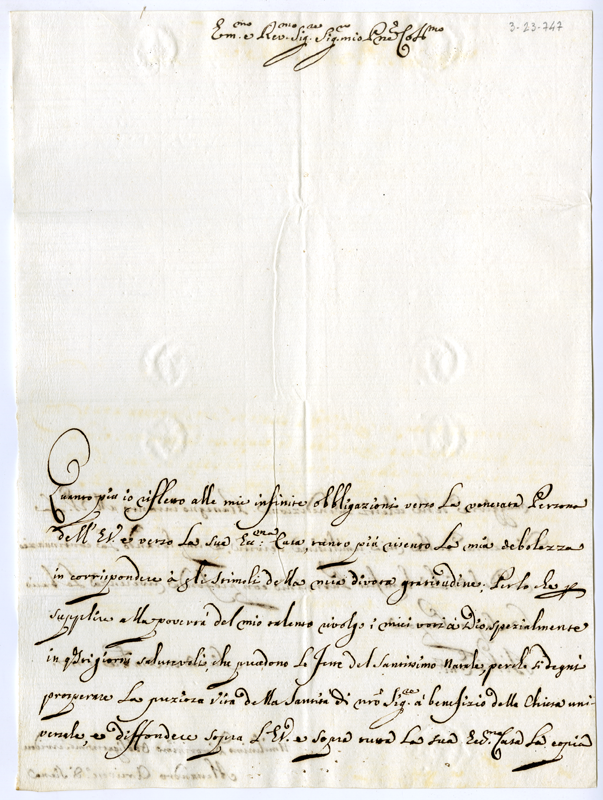 Em.mo e Rev.mo Sig.re Sig.re mio P̃ne Coll.mo
3-23-747
Quanto più io rifletto alle mie infinite obbligazioni verso la venerata Persona
dell' E.V. e verso la sua Ecc.ma Casa tanto più risento la mia debolezza
in corrispondere à gli stimoli della mia divota gratitudine; Per lo che p
supplire alla povertà del mio talento rivolgo i miei voti à Dio, spezialmente
in q̃sti giorni salutevoli, che precedono le feste del Santissimo Natale, perche si degni
prosperare la preziosa vita della Santità di nrõ Sig.re à benefizio della Chiesa uni-
versale, e diffondere sopra l'E.V. e sopra tutta la sua Ecc.ma Casa la copia